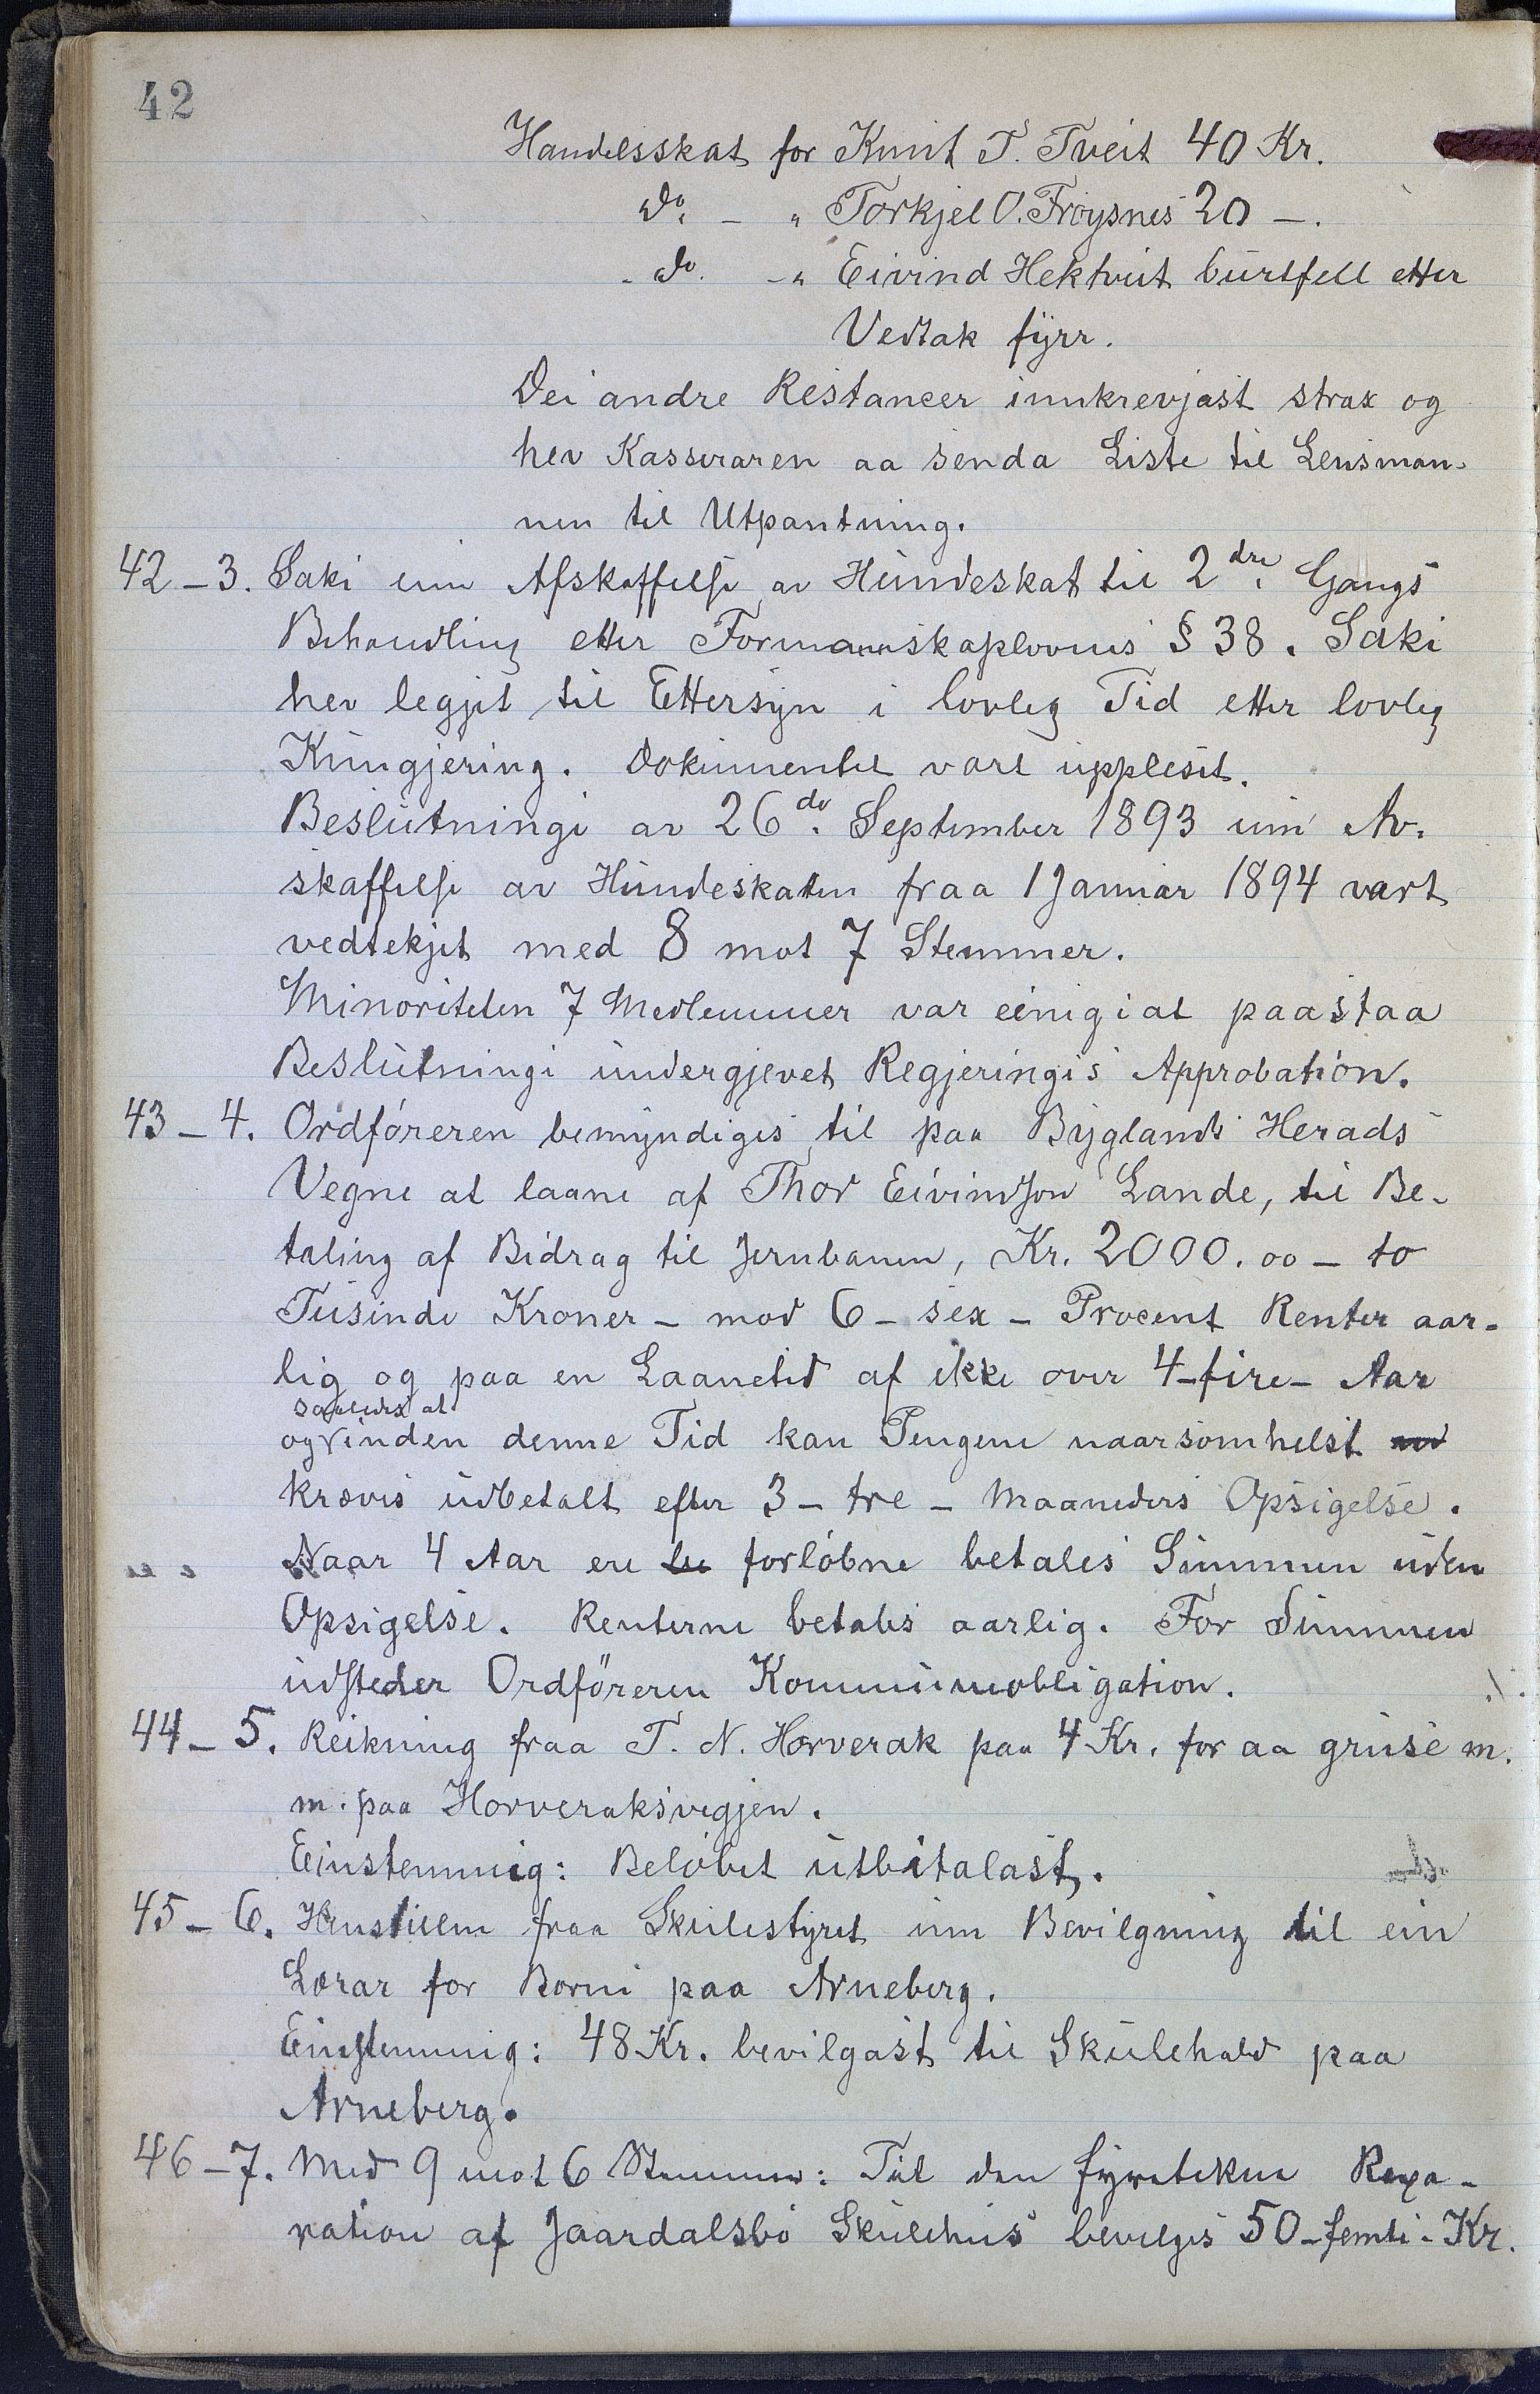 42
Handelsskat for Knut T. Tveit 40 Kr.
do. - " Torkjel O. Frøysnes 20 -.
- do. - " Eivind Hektveit burtfell etter
Vedtak fyrr.
Dei andre Restancer innkrevjast strax og
hev Kasseraren aa senda Liste til Lensman-
nen til Utpantning.
42-3. Saki um Afskaffelse av Hundeskat til 2dre Gangs
Behandling etter Formannskaplovens § 38. Saki
hev legjet til Ettersyn i lovleg Tid etter lovleg
Kungjering. Dokumentet vart upplesit.
Beslutningi av 26de September 1893 um Av-
skaffelse av Hundeskatten fraa 1 Januar 1894 vart
vedtekjet med 8 mot 7 Stemmer.
Minoriteten 7 Medlemmer var einig i at paastaa
Beslutningi undergjevet Regjeringis Approbation.
43-4. Ordføreren bemyndiges til paa Byglands Herads
Vegne at laane af Thor Eivindson Lande, til Be-
taling af Bidrag til Jernbanen, Kr. 2000.00 - to
Tusinde Kroner - mod 6 - sex - Procent Renter aar-
lig og paa en Laanetid af ikke over 4-fire- Aar
saaledes at
og inden denne Tid kan Pengene naarsomhelst
kræves udbetalt efter 3 - tre - Maaneders Opsigelse.
Naar 4 Aar ere forløbne betales Summen uden
Opsigelse. Renterne betales aarlig. For Summen
udsteder Ordføreren Kommuneobligation.
44-5. Reikning fraa T. N. Horverak paa 4 Kr. for aa gruse m.
m. paa Horveraksvegjen.
Einstemmig: Beløbet utbetalast.
45-6. Henstillen fraa Skulestyret um Bevilgning til ein
Lærar for Borni paa Arneberg.
Einstemmig: 48 Kr. bevilgast til Skulehald paa
Arneberg.
46-7. Med 9 mot 6 Stemmer: Til den fyretekne Repa-
ration af Jaardalsbø Skulehus bevilges 50-femti-Kr.